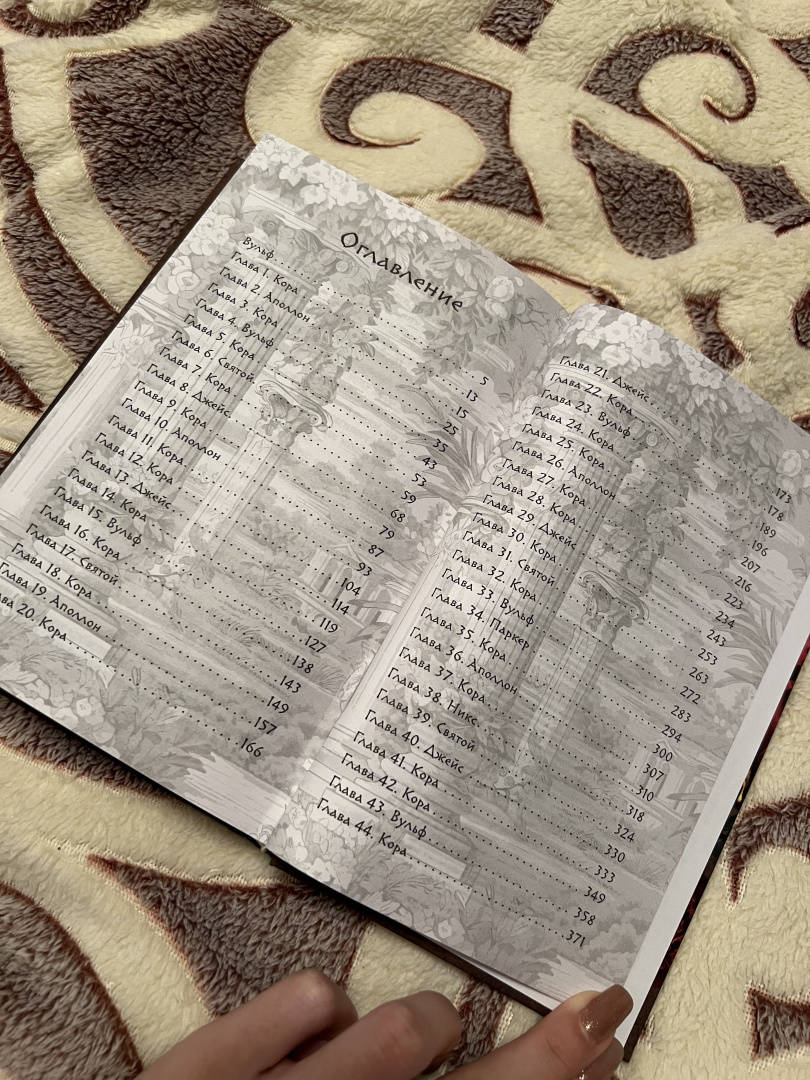 Оглавление
Вульф . . . . . 5
Глава 1. Кора . . . . . 13
Глава 2. Аполлон . . . . . 15
Глава 3. Кора . . . . . 25
Глава 4. Вульф . . . . . 35
Глава 5. Кора . . . . . 43
Глава 6. Святой . . . . . 53
Глава 7. Кора . . . . . 59
Глава 8. Джейс . . . . . 68
Глава 9. Кора . . . . . 79
Глава 10. Аполлон . . . . . 87
Глава 11. Кора . . . . . 93
Глава 12. Кора . . . . . 104
Глава 13. Джейс . . . . . 114
Глава 14. Кора . . . . . 119
Глава 15. Вульф . . . . . 127
Глава 16. Кора . . . . . 138
Глава 17. Святой . . . . . 143
Глава 18. Кора . . . . . 149
Глава 19. Аполлон . . . . . 157
ва 20. Кора . . . . . 166
Глава 21. Джейс . . . . . 173
Глава 22. Кора . . . . . 178
Глава 23. Вульф . . . . . 189
Глава 24. Кора . . . . . 196
Глава 25. Кора . . . . . 207
Глава 26. Аполлон . . . . . 216
Глава 27. Кора . . . . . 223
Глава 28. Кора . . . . . 234
Глава 29. Джейс . . . . . 243
Глава 30. Кора . . . . . 253
Глава 31. Святой . . . . . 263
Глава 32. Кора . . . . . 272
Глава 33. Вульф . . . . . 283
Глава 34. Паркер . . . . . 294
Глава 35. Кора . . . . . 300
Глава 36. Аполлон . . . . . 307
Глава 37. Кора . . . . . 310
Глава 38. Никс . . . . . 318
Глава 39. Святой . . . . . 324
Глава 40. Джейс . . . . . 330
Глава 41. Кора . . . . . 333
Глава 42. Кора . . . . . 349
Глава 43. Вульф . . . . . 358
Глава 44. Кора . . . . . 371